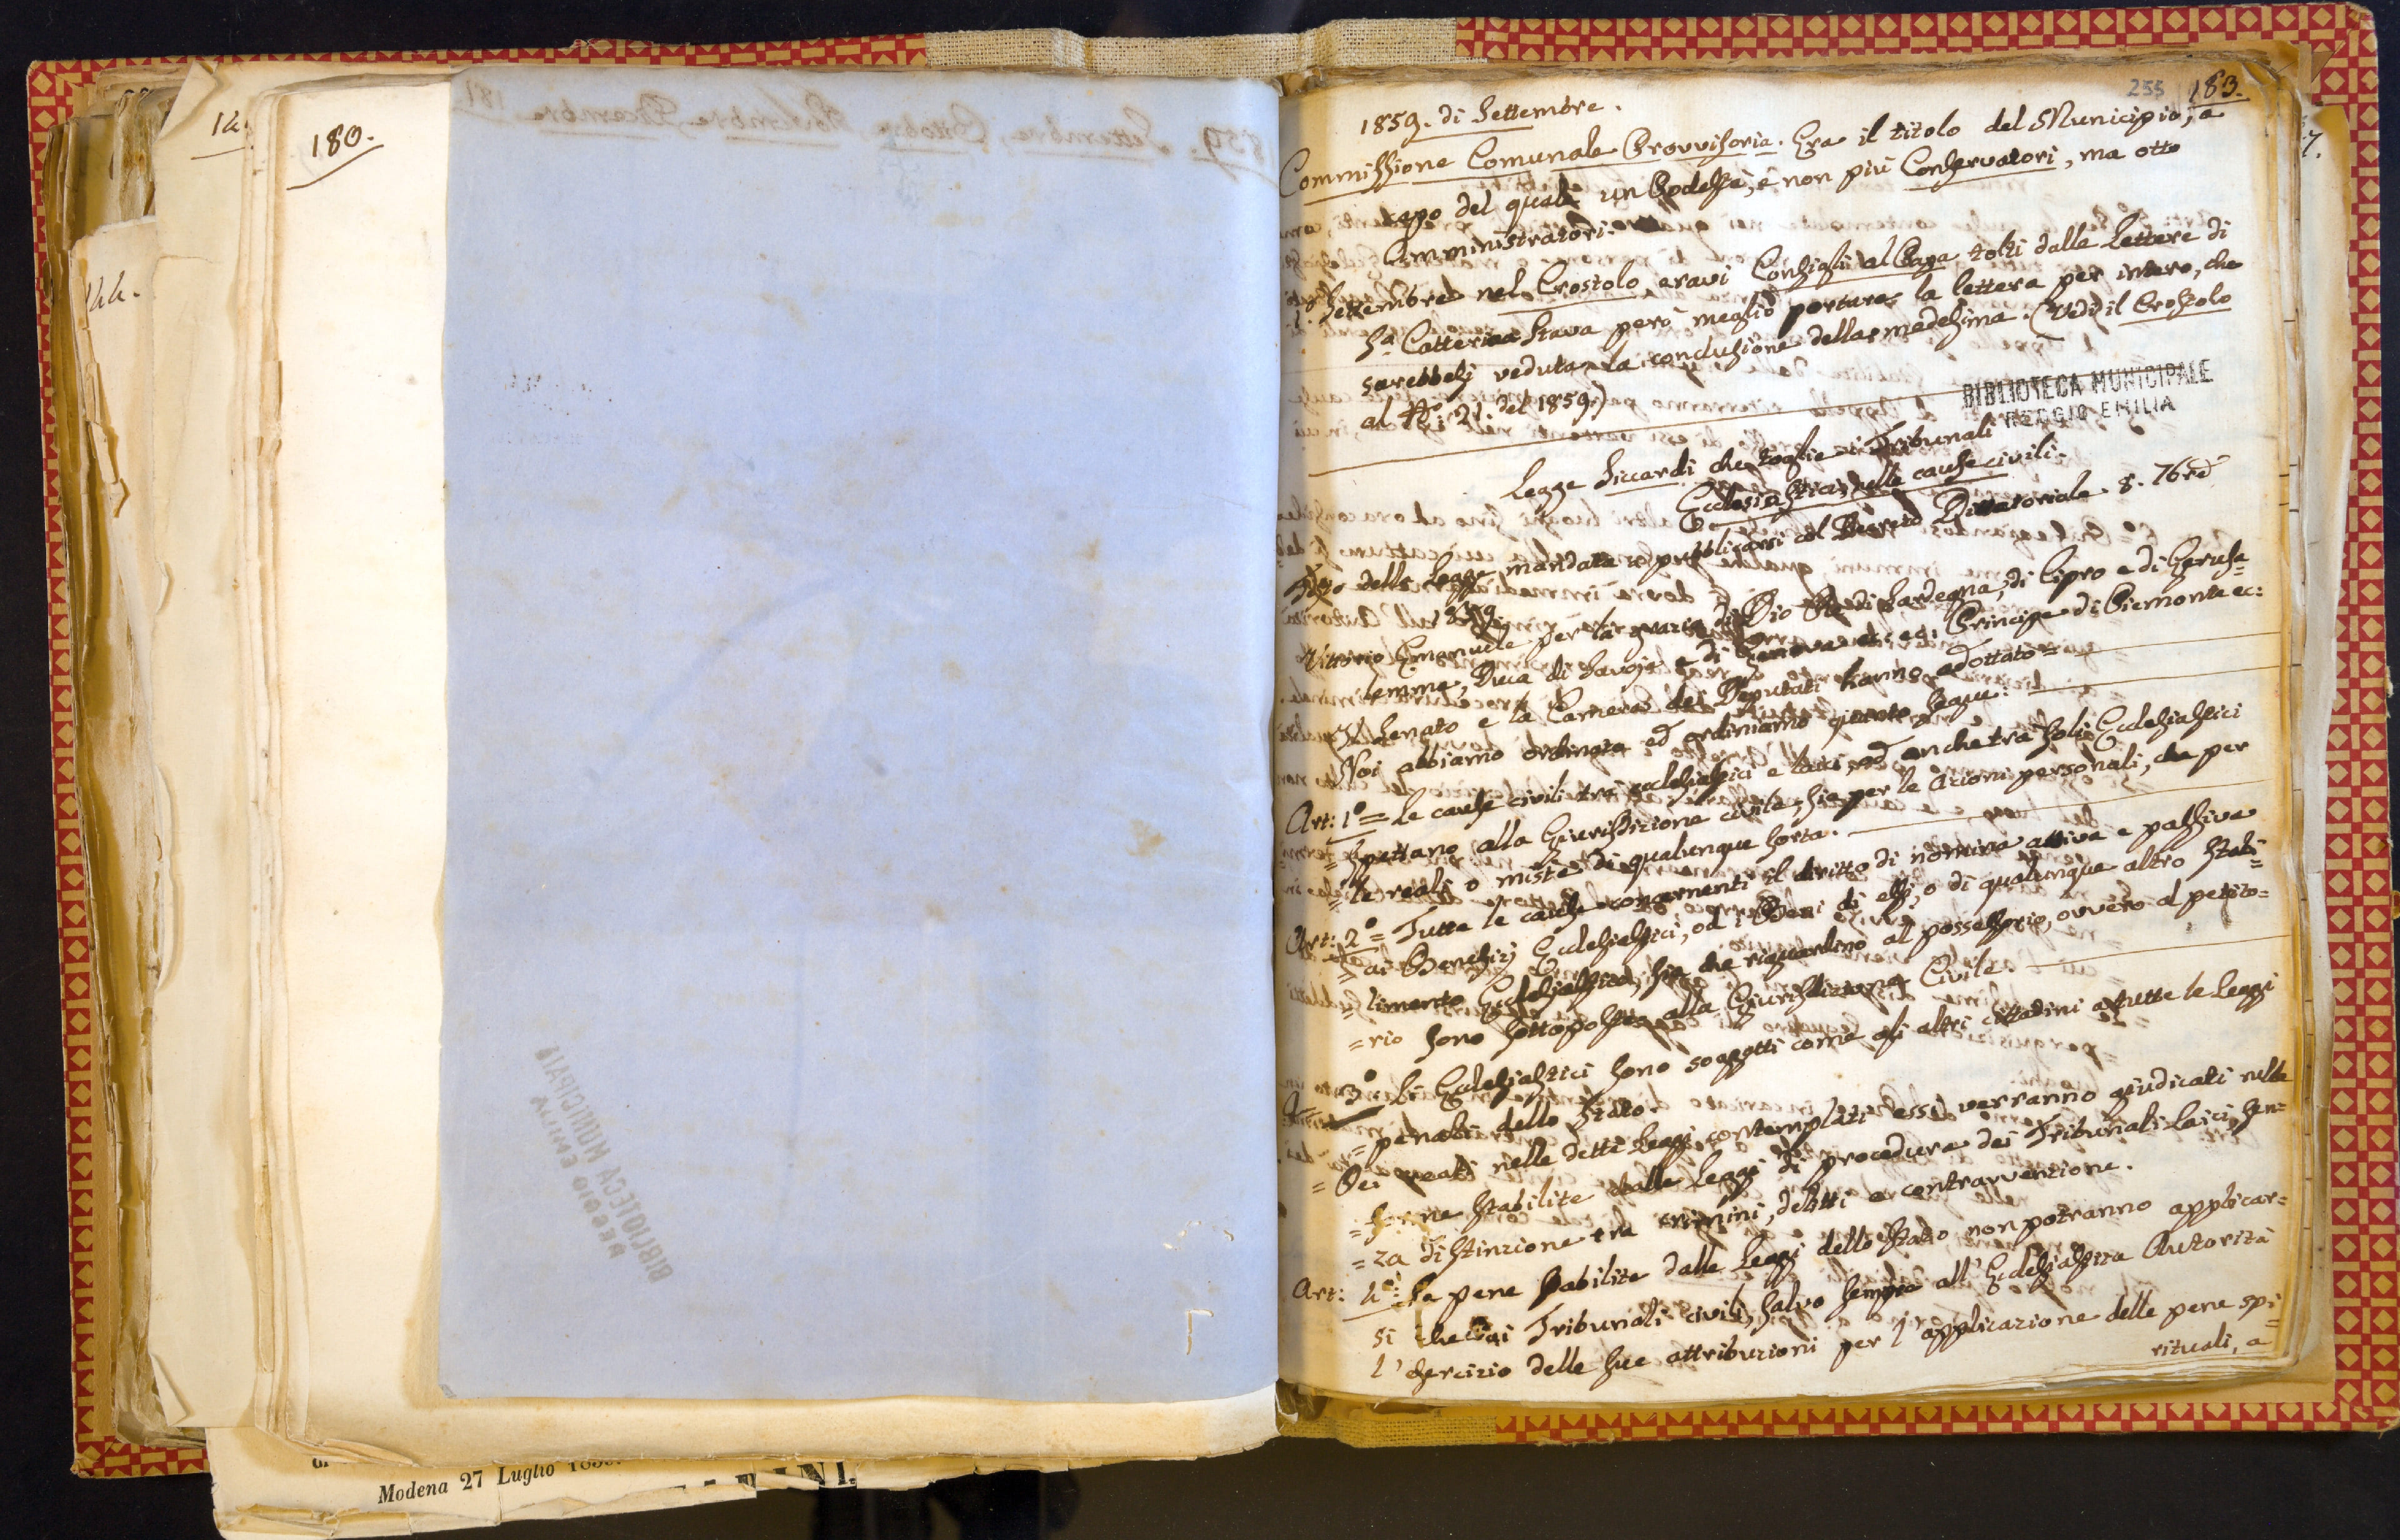 180.
144.
Modena 27 Luglio
255 183.
1859. di Settembre.
Commissione Comunale Provvisoria. Era il titolo del Municipio, a
capo del quale un Podestà, e non più Conservatori, ma otto
Amministratori.
Settembre nel Crostolo eravi Consigli al Papa tolti dalle Lettere di
Sa. Catterina Stava però meglio portare la lettera per intero, che
sarebbesi veduta la conclusione della medesima. (Vedi il Crostolo
al No: 21. del 1859.)
BIBLIOTECA MUNICIPALE
REGGIO EMILIA
Legge Siccardi che toglie i Tribunali
Eclesiastici nelle cause civili.
della Legge mandata a pubblicarsi col Decreto Dittatoriale 8. 7bre
1859
Vittorio Emanuele per la grazia di Dio Re di Sardegna, di Cipro e di Gerusa=
lemme, Duca di Savoja e di Genova ec. ec. Principe di Piemonte ec:
Il Senato e la Camera dei Deputati hanno adottato=
Noi abbiamo ordinato ed ordiniamo quanto segue:
Art: 1º= Le cause civili tra ecclesiastici e laici, ed anche tra soli Ecclesiastici
= spettano alla Giurisdizione civile, sia per le azioni personali, che per
= le reali o miste di qualunque sorta.
Art: 2º= Tutte le cause concernenti il diritto di nomina attiva e passiva
= ai Benefizj Ecclesiastici, od i Beni di essi, o di qualunque altro Stabi=
= limento Ecclesiastico, sia che riguardino al possessorio, ovvero al petito=
= rio sono sottoposte alla Giurisdizione Civile.
3º Li Ecclesiastici sono soggetti come gli altri cittadini a tutte le Leggi
= penali dello Stato.
= Pei reati nelle dette Leggi contemplati essi verranno giudicati nelle
= forme stabilite dalle Leggi di procedura dei Tribunali Laici, sen=
= za distinzione tra crimini, delitti e contravvenzione.
Art: 4º: Le pene stabilite dalle Leggi dello Stato non potranno applicar=
si che dai Tribunali civili, salvo sempre all'Ecclesiastica Autorità
l'esercizio delle sue attribuzioni per l'applicazione delle pene spi=
rituali, a